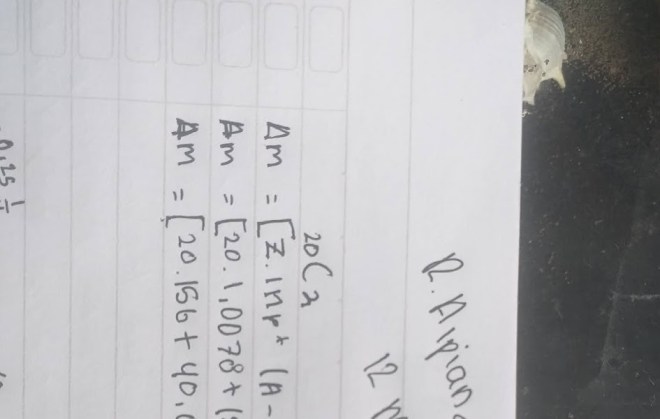 R. Alpian
12
20Ca
Δm = [Z.1nr+ (A-
Δm = [20.1,0078+(
Δm = [20.156+40,
0,25 1